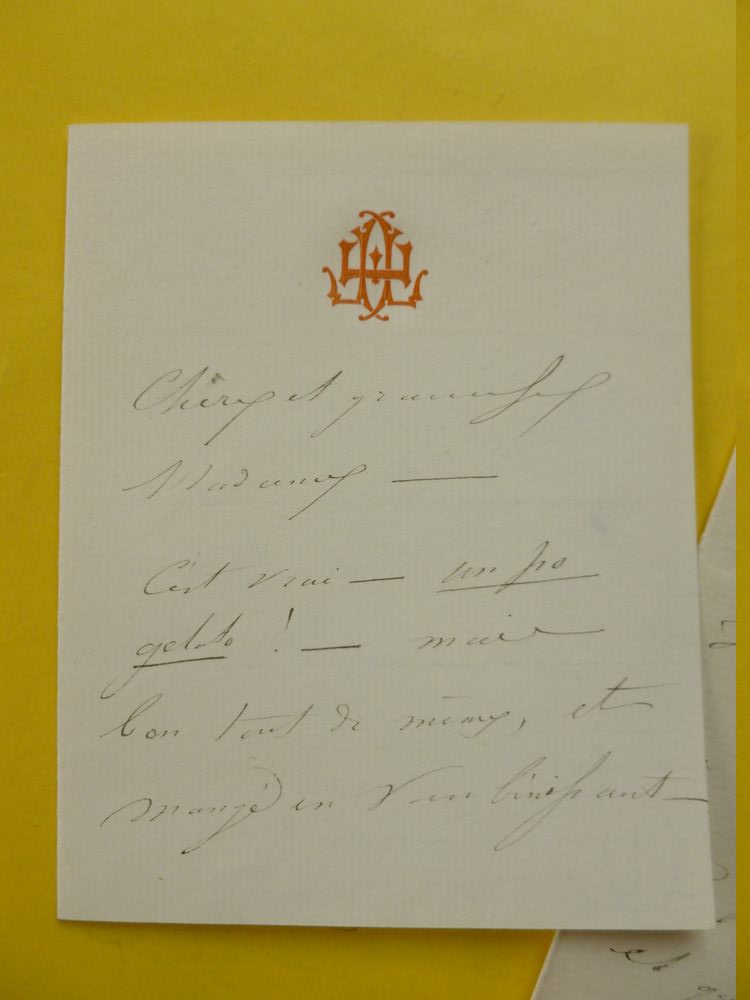 Chère et gracieuse
Madame —
C'est vrai — un po
gelato ! — mais
bon tout de même, et
mangé en vous bénissant —